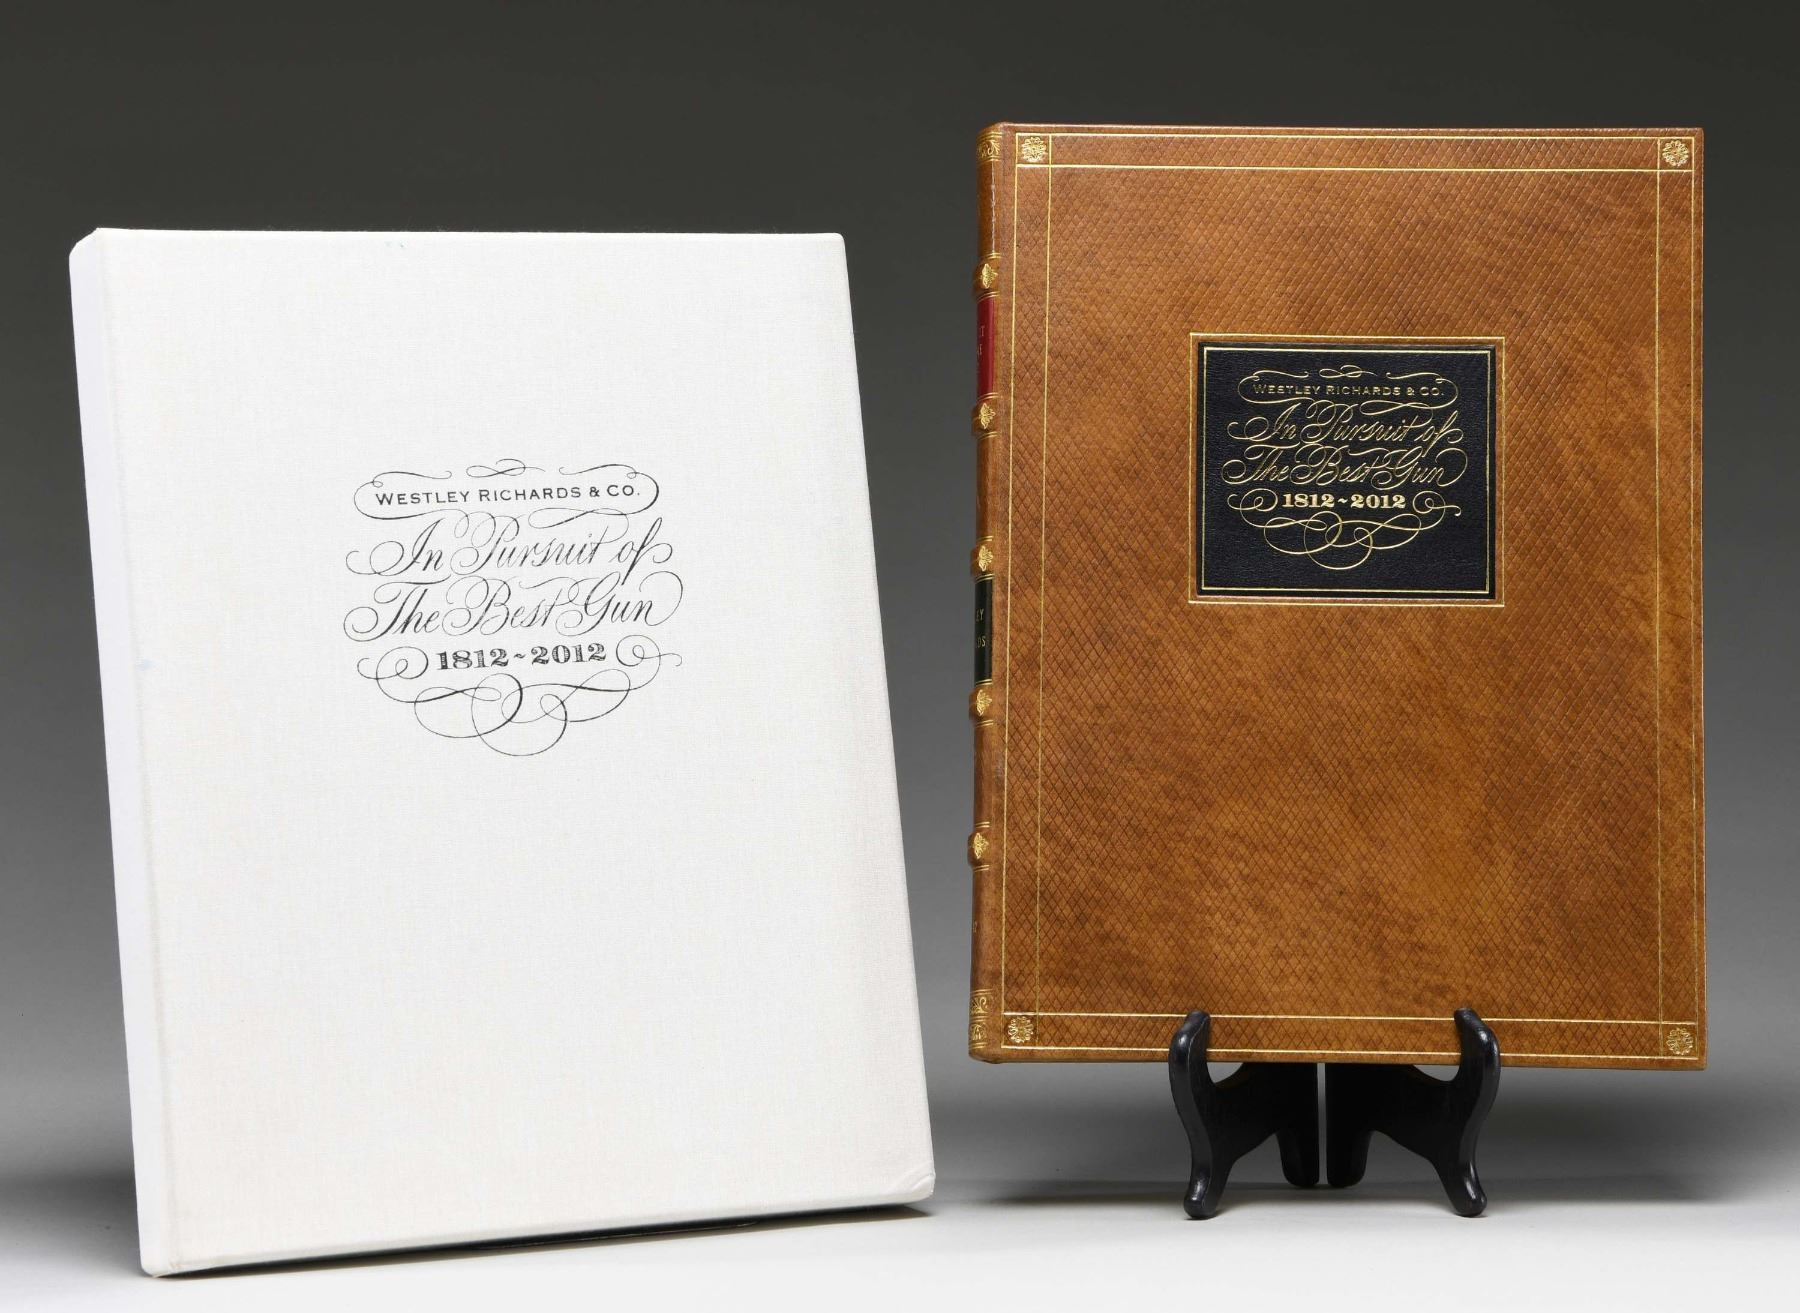 WESTLEY RICHARDS & CO.
In Pursuit of
The Best Gun
1812~2012
WESTLEY RICHARDS & CO.
In Pursuit of
The Best Gun
1812~2012